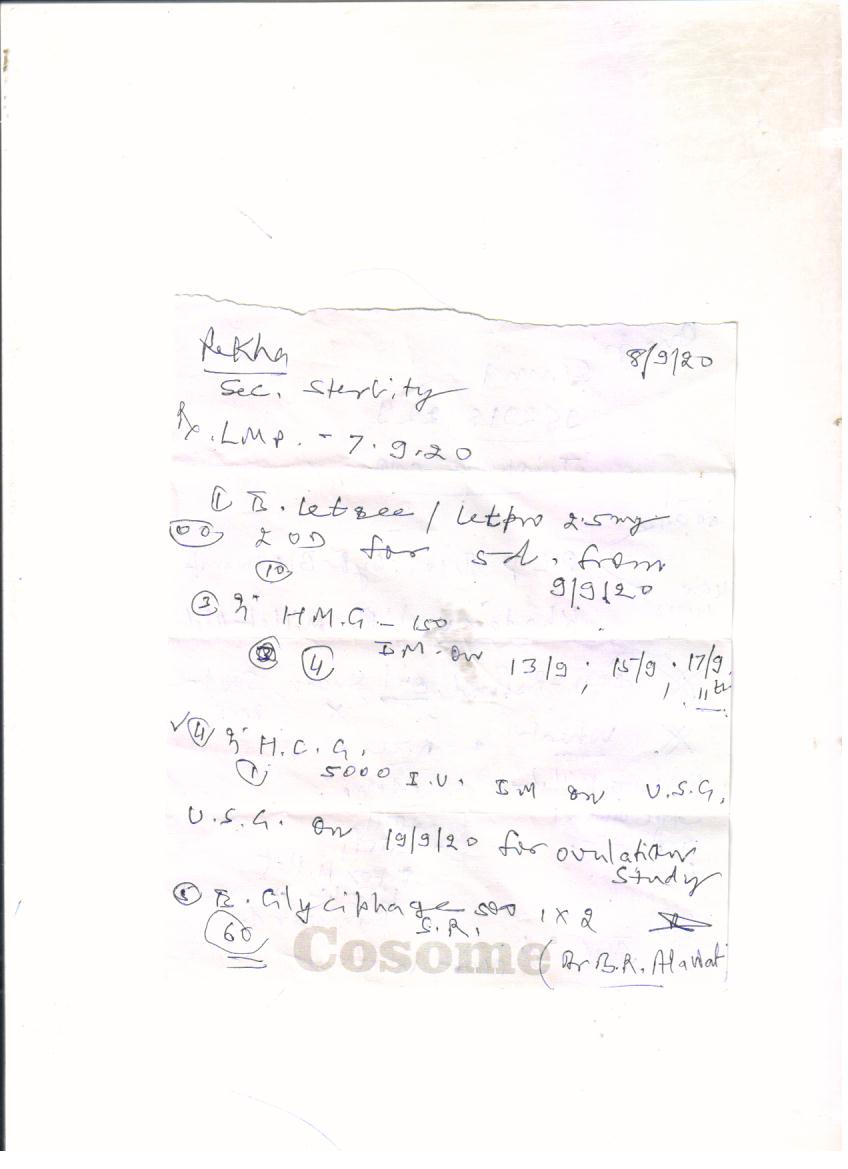 Rekha 8/9/20
Sec. Sterlity
Rx. LMP. - 7.9.20
① T. Letzee / Letpro 2.5mg
2 OD for 5d. from
10 9/9/20
③ HMG - 150
④ IM on 13/9, 15/9, 17/9
11th
④ H.C.G.
① 5000 I.U. IM on U.S.G.
U.S.G. on 19/9/20 for ovulation
Study
⑤ T. Glyciphage 500 1 x 2
S.R.
60
Cosome
(Dr B.R. Alawat